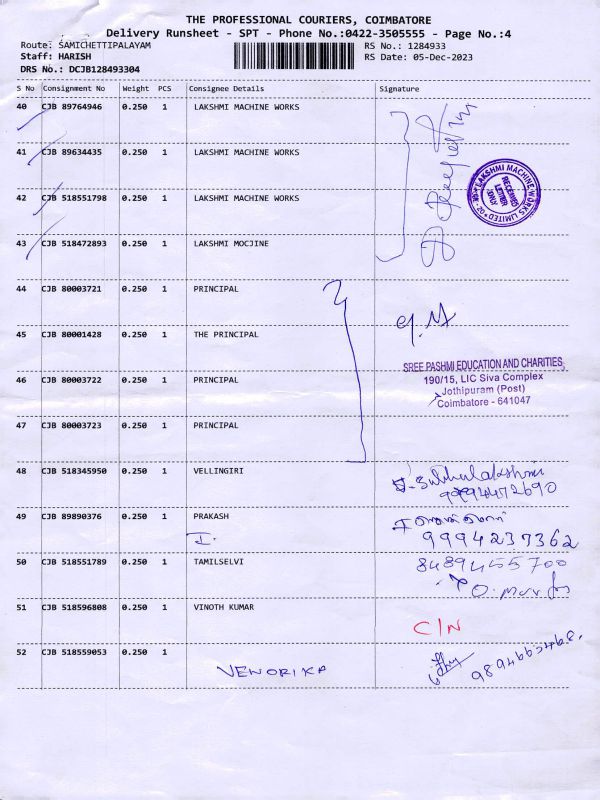 THE PROFESSIONAL COURIERS, COIMBATORE
Delivery Runsheet - SPT - Phone No.:0422-3505555 - Page No.:4
Route: SAMICHETTIPALAYAM RS No.: 1284933
Staff: HARISH RS Date: 05-Dec-2023
DRS No.: DCJB128493304
S No Consignment No Weight PCS Consignee Details Signature
40 CJB 89764946 0.250 1 LAKSHMI MACHINE WORKS
41 CJB 89634435 0.250 1 LAKSHMI MACHINE WORKS
LAKSHMI MACHINE WORKS LIMITED
RECEIVED
LETTER
ONLY
42 CJB 518551798 0.250 1 LAKSHMI MACHINE WORKS
43 CJB 518472893 0.250 1 LAKSHMI MOCJINE
44 CJB 80003721 0.250 1 PRINCIPAL
45 CJB 80001428 0.250 1 THE PRINCIPAL
SREE PASHMI EDUCATION AND CHARITIES
46 CJB 80003722 0.250 1 PRINCIPAL 190/15, LIC Siva Complex
Jothipuram (Post)
Coimbatore - 641047
47 CJB 80003723 0.250 1 PRINCIPAL
48 CJB 518345950 0.250 1 VELLINGIRI
49 CJB 89890376 0.250 1 PRAKASH
I.
9994237362
50 CJB 518551789 0.250 1 TAMILSELVI 8489455700
51 CJB 518596808 0.250 1 VINOTH KUMAR
C/N
52 CJB 518559053 0.250 1
VENORIKA